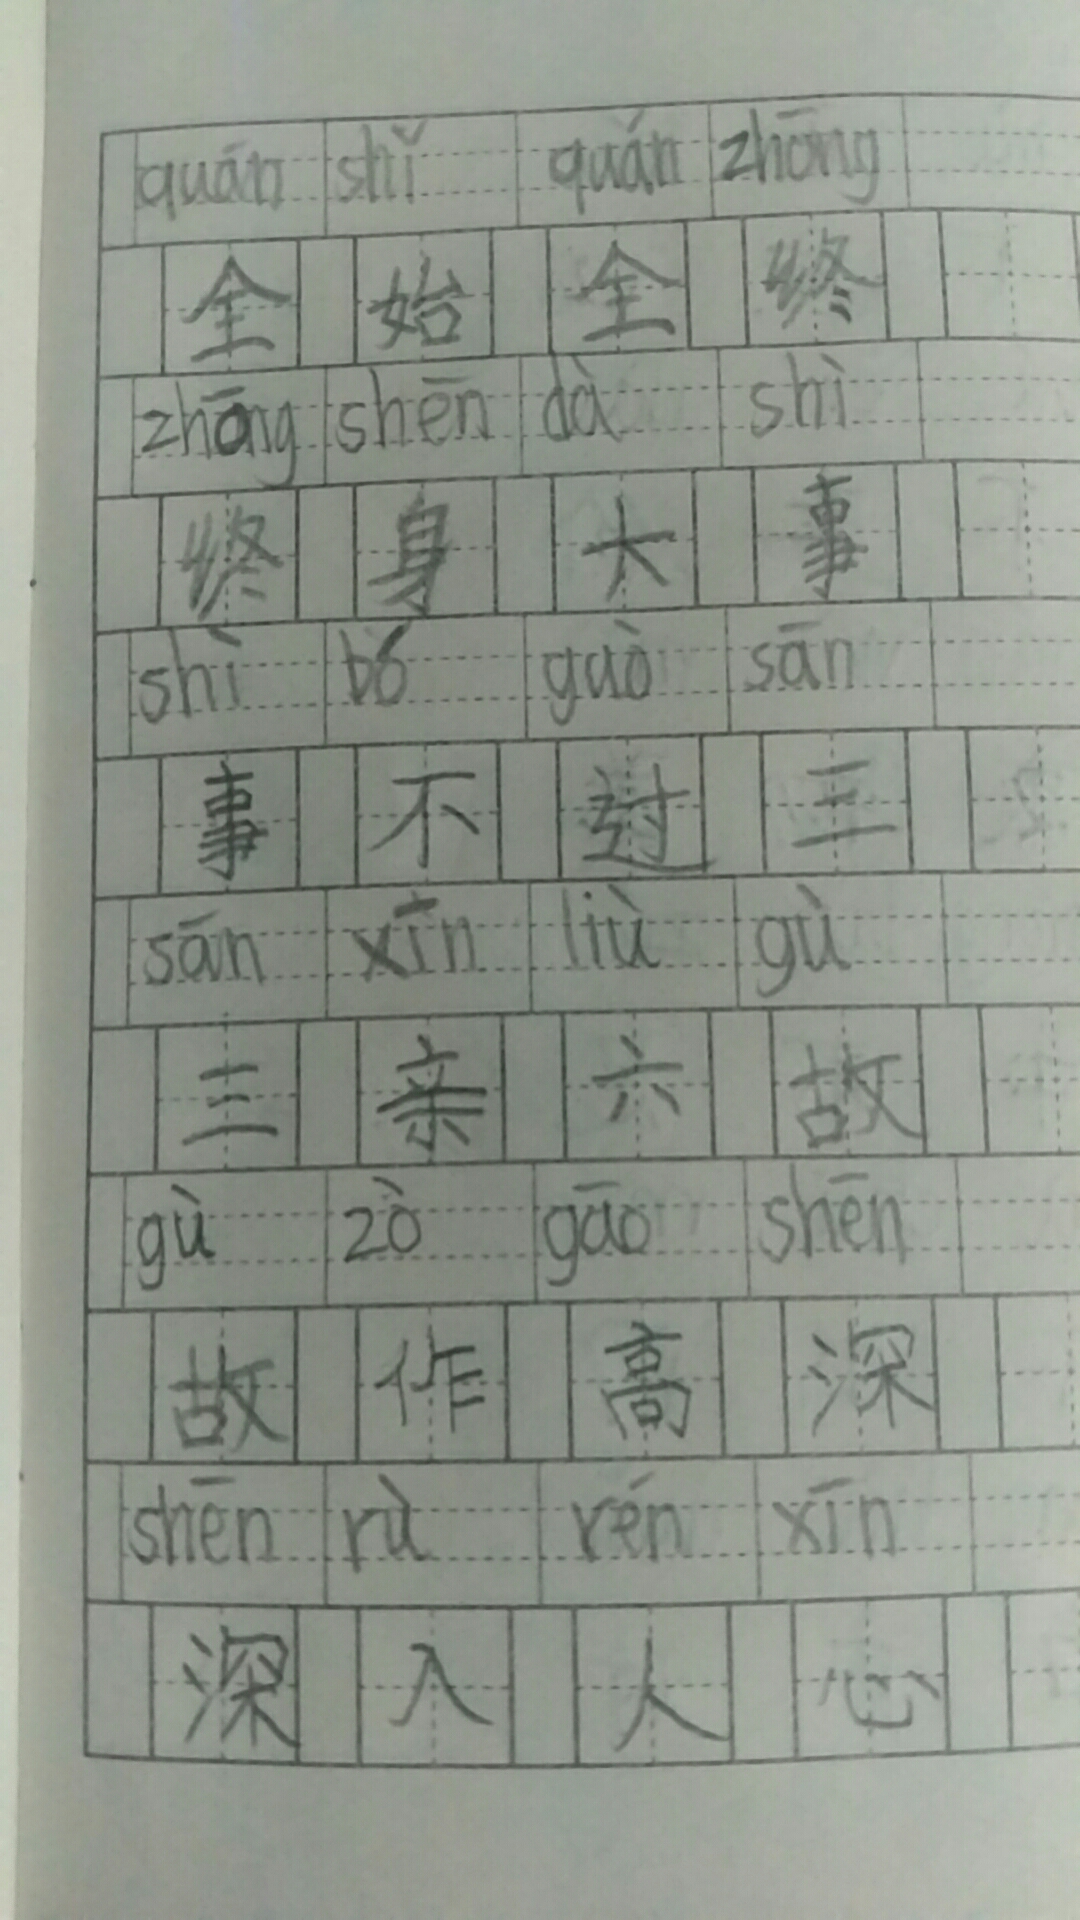 quán shǐ quán zhōng
全始全终
zhōng shēn dà shì
终身大事
shì bó guò sān
事不过三
sān xīn liù gù
三亲六故
gù zò gāo shēn
故作高深
shēn rù rén xīn
深入人心